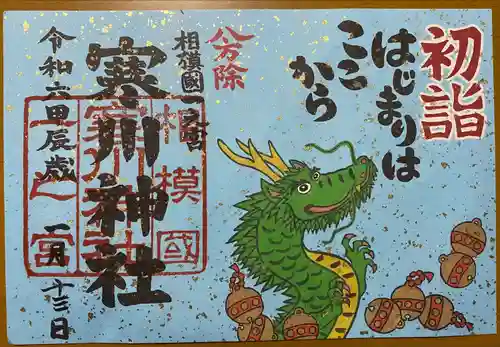 初詣
はじまりは
ここ
から
八方除
相模國一之宮
寒川神社
相模國
一之宮
令和六甲辰歳
一月
十三日